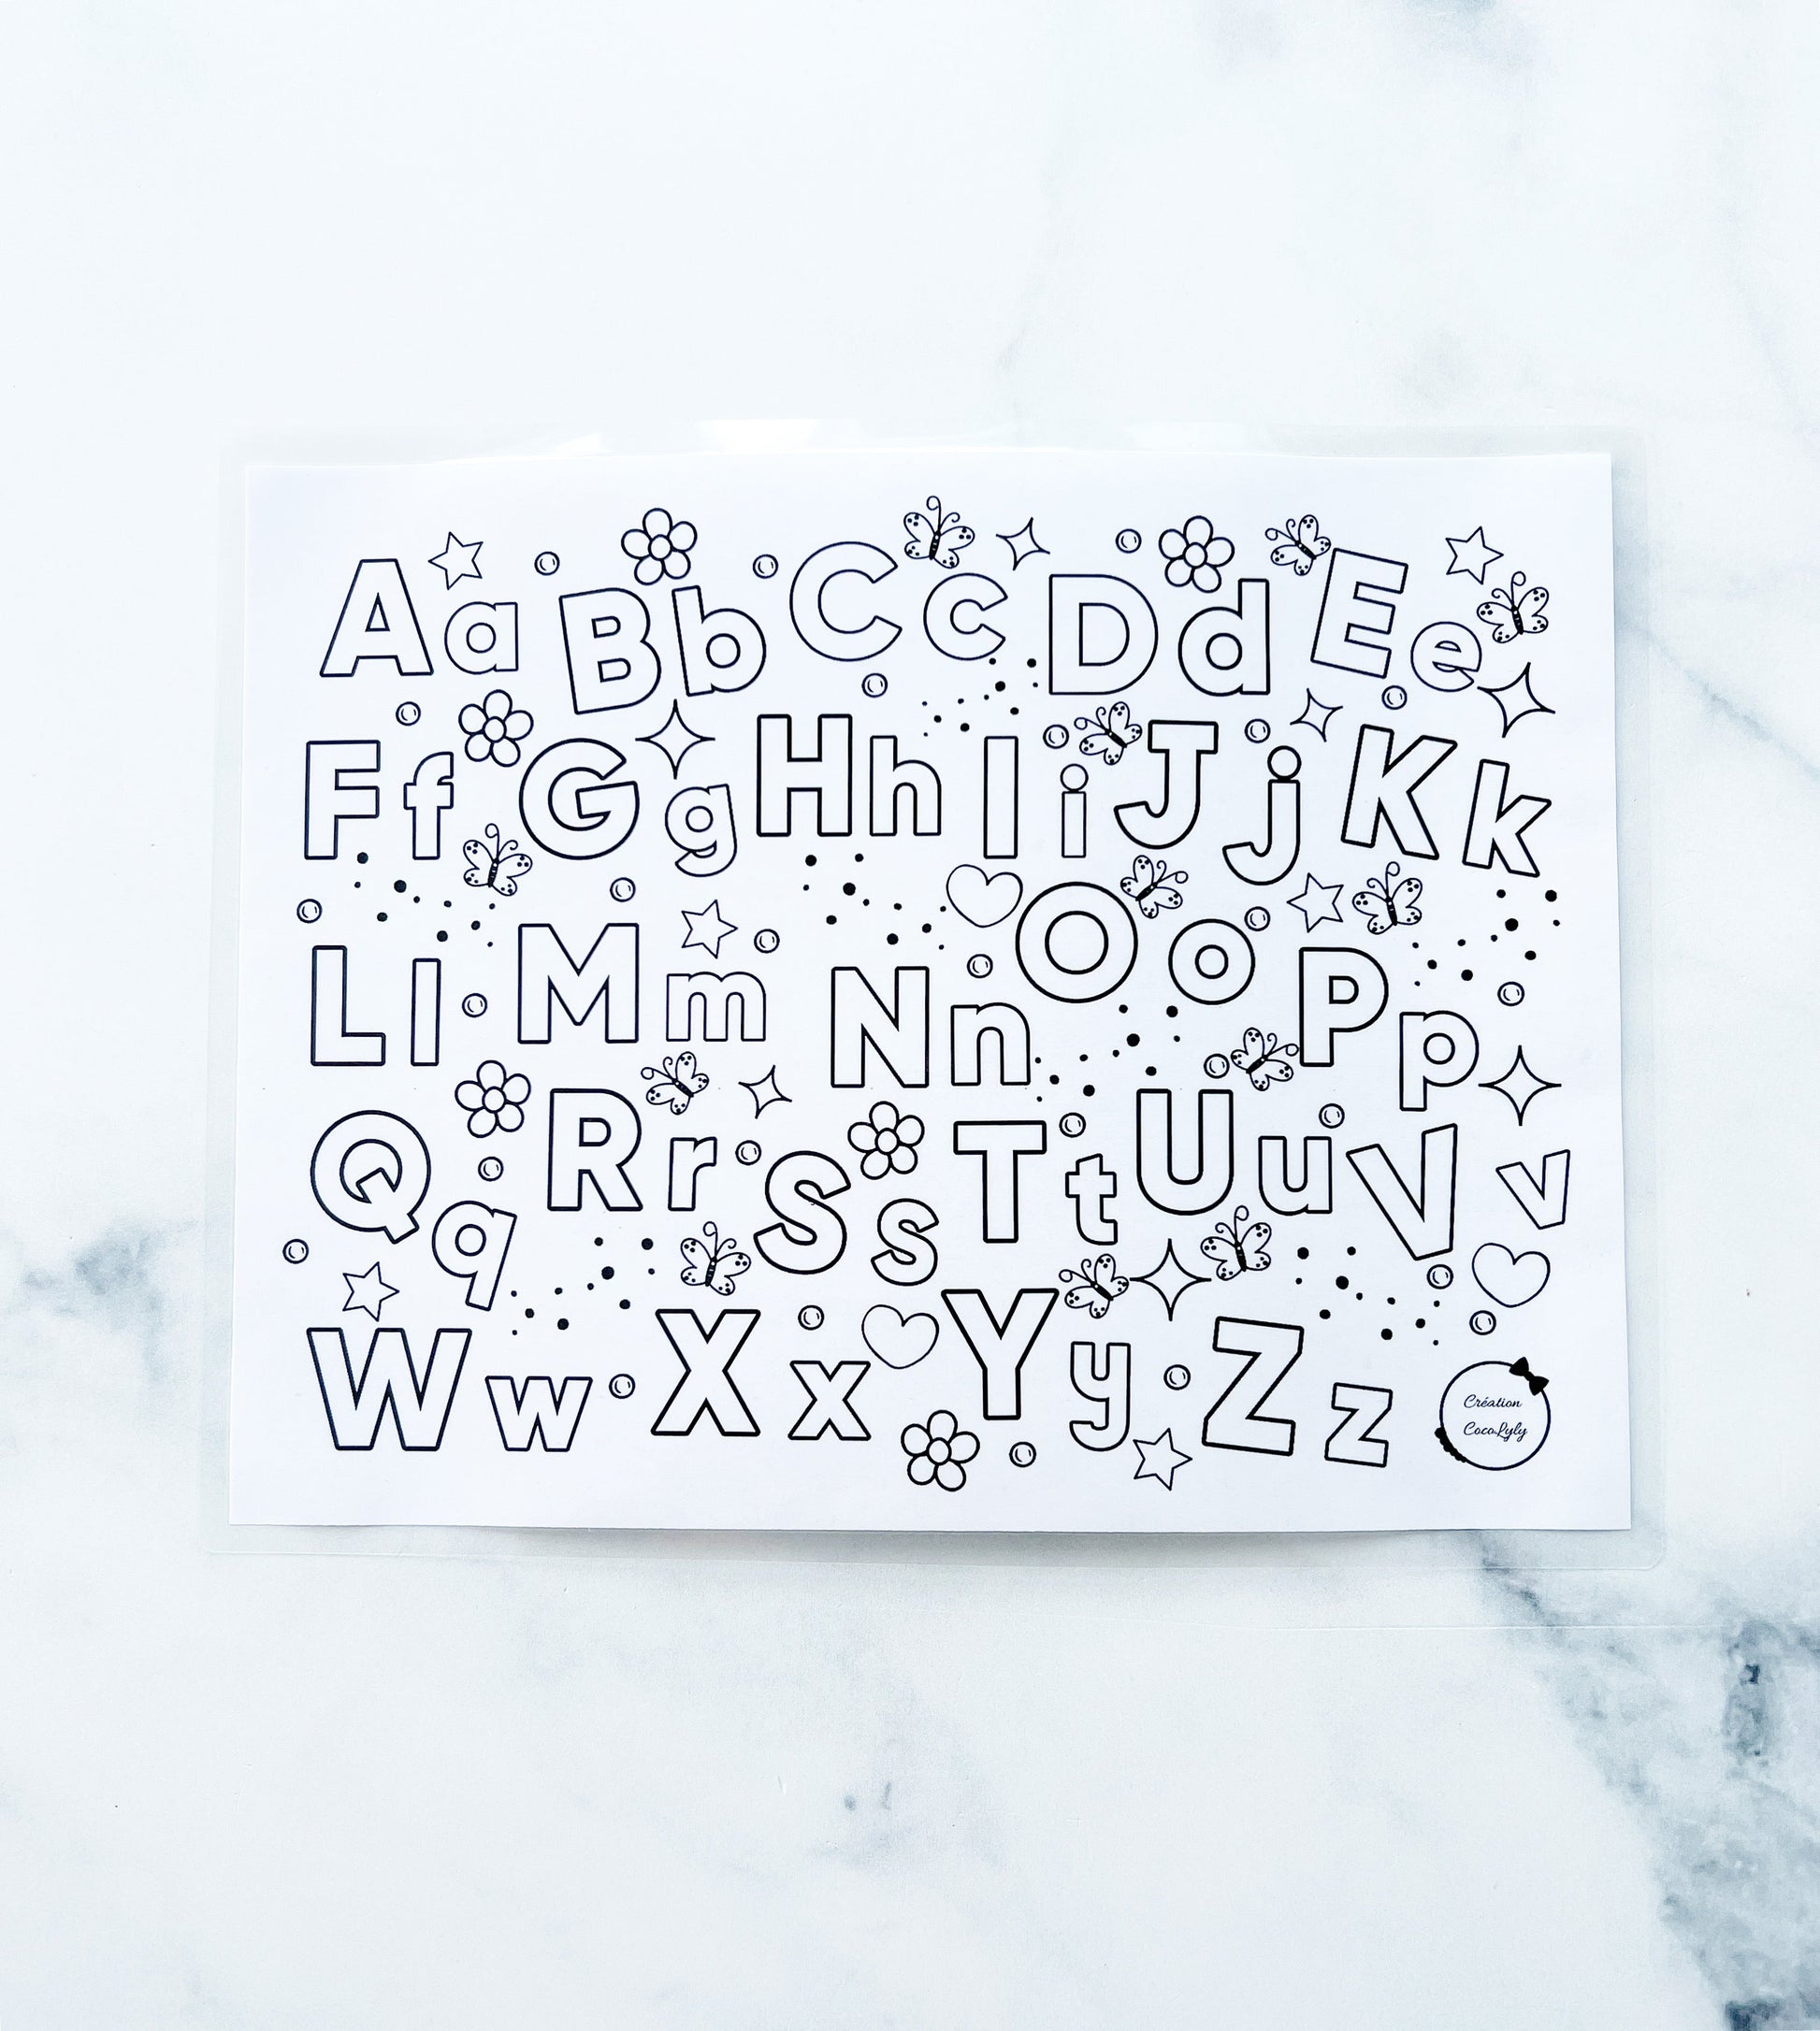 Aa Bb Cc Dd Ee
Ff Gg Hh Ii Jj Kk
Ll Mm Nn Oo Pp
Qq Rr Ss Tt Uu Vv
Ww Xx Yy Zz
Création
CocoLyly